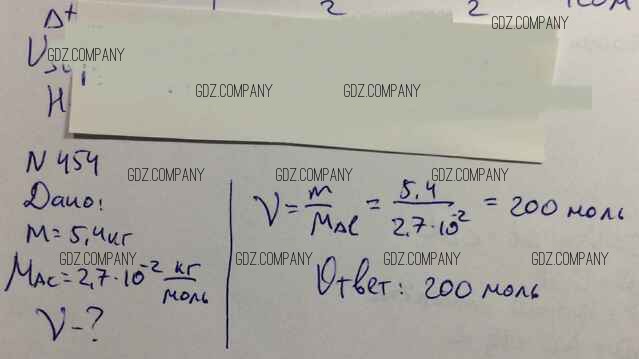 Δt 2 2
GDZ.COMPANY
V
GDZ.COMPANY
GDZ.COMPANY
GDZ.COMPANY
H
N 454
GDZ.COMPANY
GDZ.COMPANY
GDZ.COMPANY
Дано:
m = 5,4 кг
M_Al = 2,7·10⁻² кг/моль
ν - ?
ν = m/M_Al = 5,4/2,7·10⁻² = 200 моль
GDZ.COMPANY
GDZ.COMPANY
GDZ.COMPANY
GDZ.COMPANY
Ответ: 200 моль